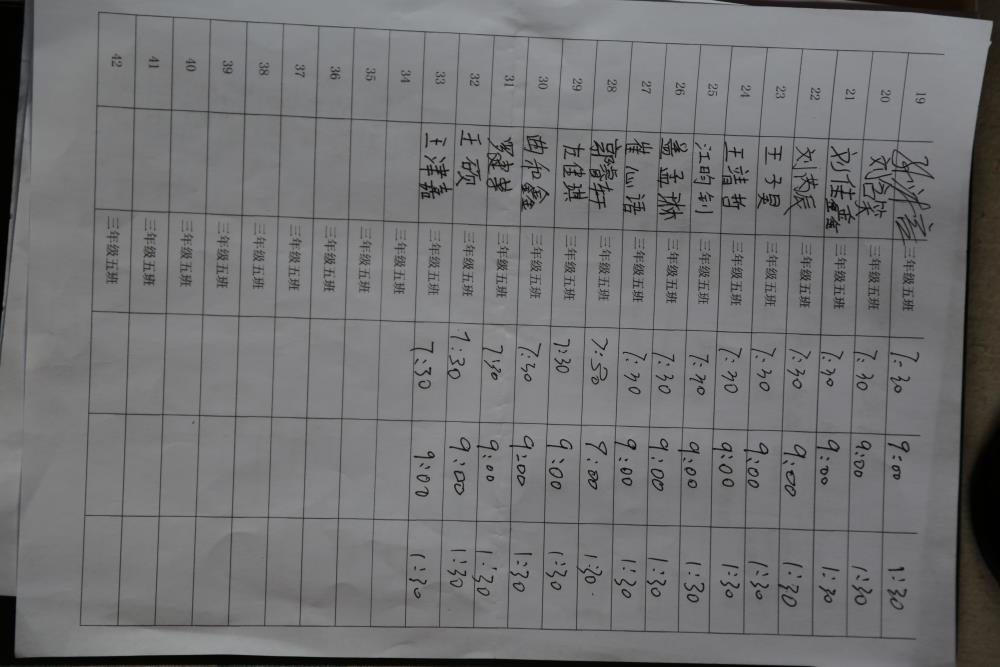 19 三年级五班 7:30 9:00 1:30
20 三年级五班 7:30 9:00 1:30
21 刘佳鑫 三年级五班 7:30 9:00 1:30
22 刘洪辰 三年级五班 7:30 9:00 1:30
23 王子昊 三年级五班 7:30 9:00 1:30
24 王誩哲 三年级五班 7:30 9:00 1:30
25 江昀钊 三年级五班 7:30 9:00 1:30
26 孟琳 三年级五班 7:30 9:00 1:30
27 崔心语 三年级五班 7:30 9:00 1:30
28 郭睿轩 三年级五班 7:50 9:00 1:30
29 左佳琪 三年级五班 7:30 9:00 1:30
30 曲知鑫 三年级五班 7:30 9:00 1:30
31 三年级五班 7:30 9:00 1:30
32 王硕 三年级五班 7:30 9:00 1:30
33 王津嘉 三年级五班 7:30 9:00 1:30
34 三年级五班
35 三年级五班
36 三年级五班
37 三年级五班
38 三年级五班
39 三年级五班
40 三年级五班
41 三年级五班
42 三年级五班